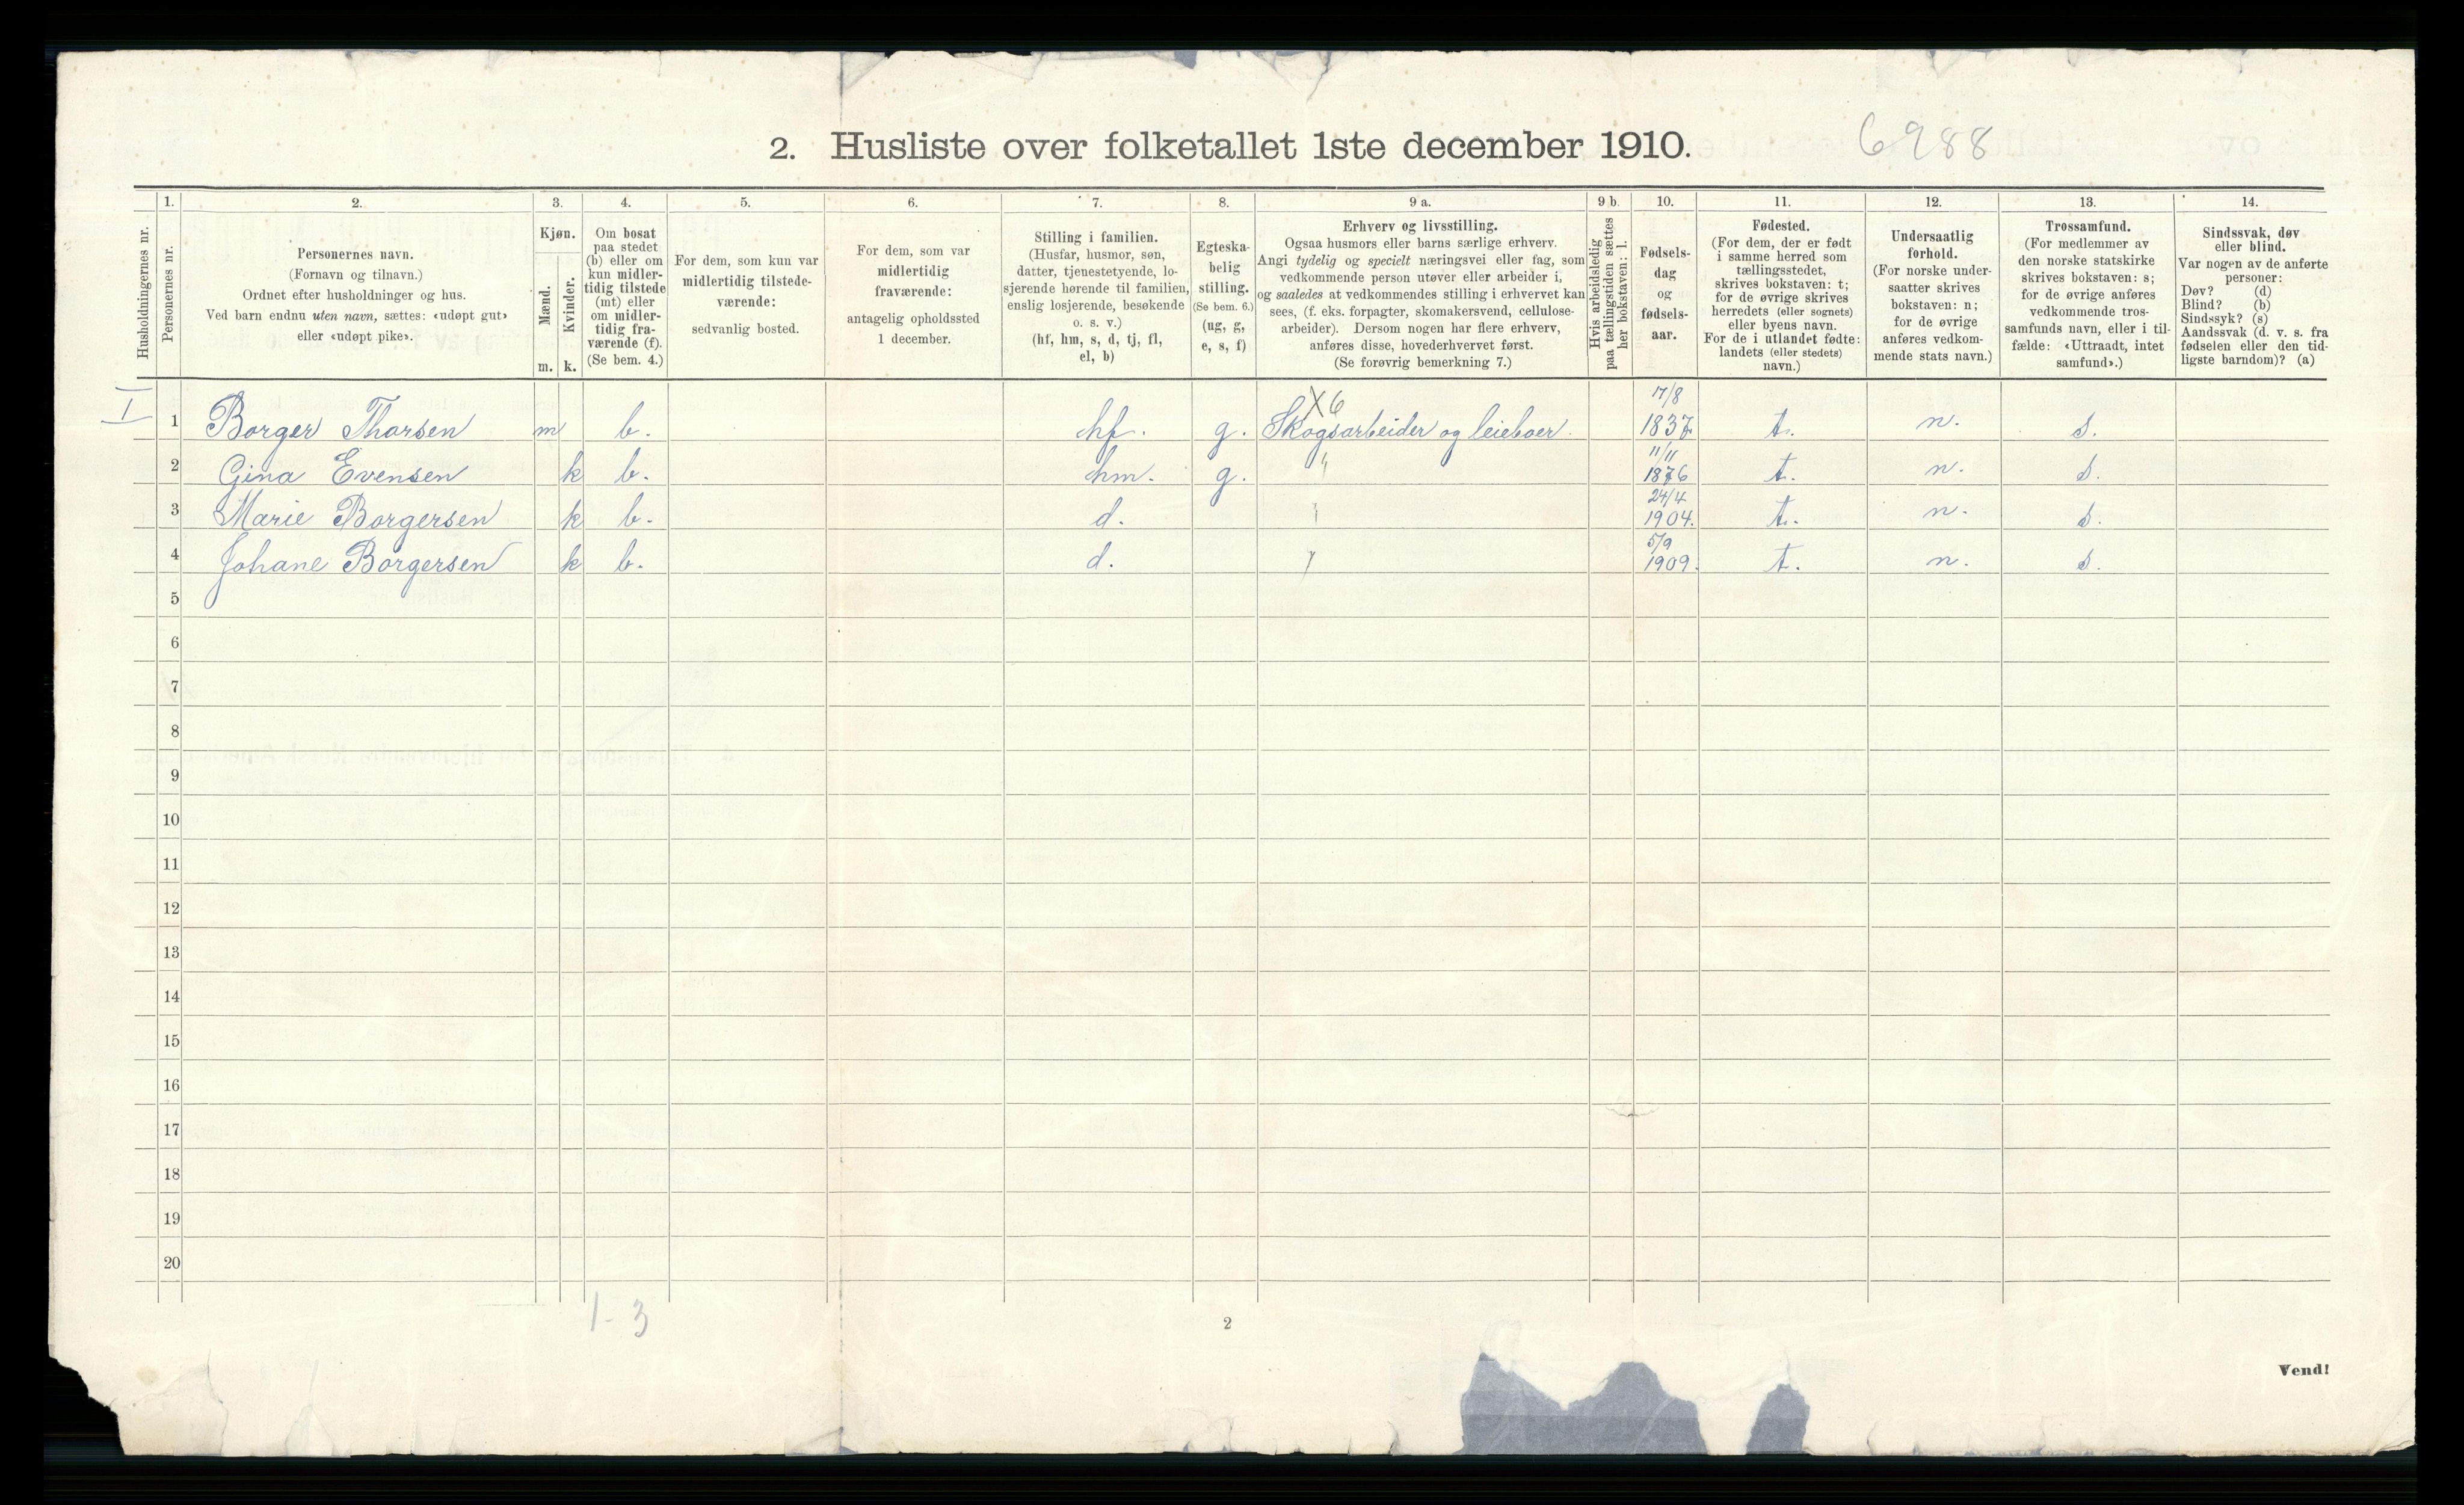 2. Husliste over folketallet 1ste december 1910.
6988
Husholdningernes nr.
1.
Personernes nr.
2.
Personernes navn.
(Fornavn og tilnavn.)
Ordnet efter husholdninger og hus.
Ved barn endnu uten navn, sættes: «udøpt gut»
eller «udøpt pike».
3.
Kjøn.
Mænd.
Kvinder.
m. k.
4.
Om bosat
paa stedet
(b) eller om
kun midler-
tidig tilstede
(mt) eller
om midler-
tidig fra-
værende (f).
(Se bem. 4.)
5.
For dem, som kun var
midlertidig tilstede-
værende:
sedvanlig bosted.
6.
For dem, som var
midlertidig
fraværende:
antagelig opholdssted
1 december.
7.
Stilling i familien.
(Husfar, husmor, søn,
datter, tjenestetyende, lo-
sjerende hørende til familien,
enslig losjerende, besøkende
o. s. v.)
(hf, hm, s, d, tj, fl,
el, b)
8.
Egteska-
belig
stilling.
(Se bem. 6.)
(ug, g,
e, s, f)
9 a.
Erhverv og livsstilling.
Ogsaa husmors eller barns særlige erhverv.
Angi tydelig og specielt næringsvei eller fag, som
vedkommende person utøver eller arbeider i,
og saaledes at vedkommendes stilling i erhvervet kan
sees, (f. eks. forpagter, skomakersvend, cellulose-
arbeider). Dersom nogen har flere erhverv,
anføres disse, hovederhvervet først.
(Se forøvrig bemerkning 7.)
9 b.
Hvis arbeidsledig
paa tællingstiden sættes
her bokstaven: l.
10.
Fødsels-
dag
og
fødsels-
aar.
11.
Fødested.
(For dem, der er født
i samme herred som
tællingsstedet,
skrives bokstaven: t;
for de øvrige skrives
herredets (eller sognets)
eller byens navn.
For de i utlandet fødte:
landets (eller stedets)
navn.)
12.
Undersaatlig
forhold.
(For norske under-
saatter skrives
bokstaven: n;
for de øvrige
anføres vedkom-
mende stats navn.)
13.
Trossamfund.
(For medlemmer av
den norske statskirke
skrives bokstaven: s;
for de øvrige anføres
vedkommende tros-
samfunds navn, eller i til-
fælde: «Uttraadt, intet
samfund».)
14.
Sindssvak, døv
eller blind.
Var nogen av de anførte
personer:
Døv? (d)
Blind? (b)
Sindssyk? (s)
Aandssvak (d. v. s. fra
fødselen eller den tid-
ligste barndom)? (a)
X6 17/8
I 1 Borger Thorsen m b. hf. g. Skogsarbeider og leieboer. 1837 t. n. s.
11/11
2 Gina Evensen k b. hm. g. " 1876 t. n. s.
24/4
3 Marie Borgersen k b. d. 1904. t. n. s.
5/9
4 Johane Borgersen k b. d. 1909. t. n. s.
5
6
7
8
9
10
11
12
13
14
15
16
17
18
19
20
1-3
2
Vend!